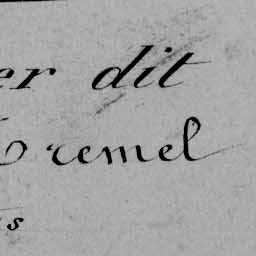 er dit
remel
s